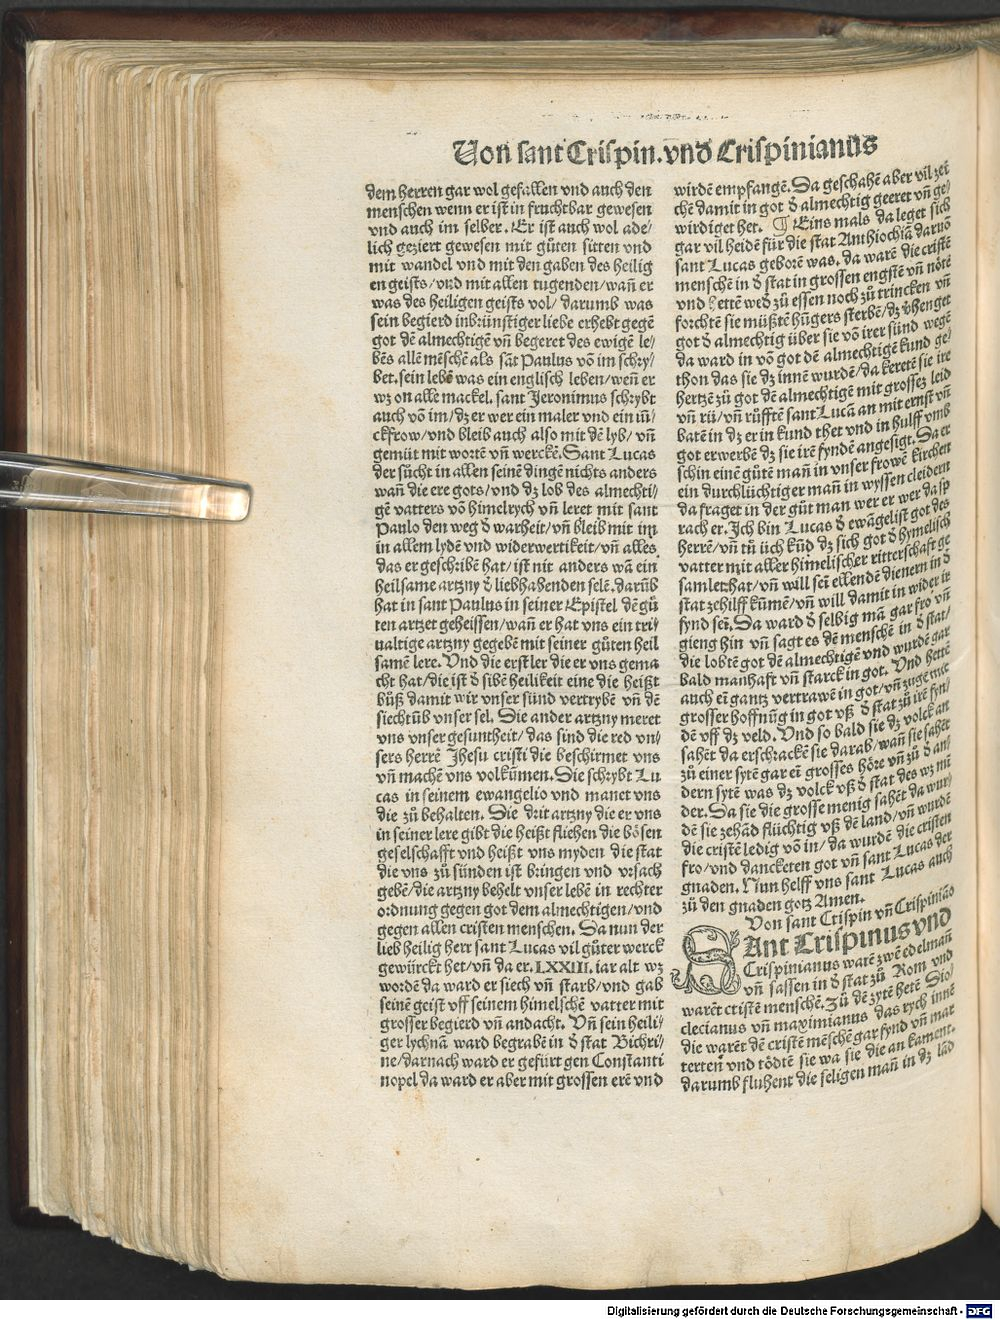 Von sant Crispin. vnd Crispinianus
dem herren gar wol gefallen vnd auch den
menschen wenn er ist in fruchtbar gewesen
vnd auch im selber. Er ist auch wol ade⸗
lich geziert gewesen mit güten sitten vnd
mit wandel vnd mit den gaben des heilig
en geists/vnd mit allen tugenden/wañ er
was des heiligen geists vol/ darumb was
sein begierd inbrünstiger liebe erhebt gegē
got dē almechtigē vñ begeret des ewigē le⸗
bēs allē mēschē als sāt Paulus vō im schry⸗
bet. sein lebē was ein englisch leben/weñ er
wz on alle mackel. sant Jeronimus schrybt
auch vō im/dz er wer ein maler vnd ein iū⸗
ckfrow/vnd bleib auch also mit dē lyb/ vñ
gemüt mit wortē vñ werckē. Sant Lucas
der sücht in allen seinē dingē nichts anders
wañ die ere gots/vnd dz lob des almechti⸗
gē vatters vō himelrych vñ leret mit sant
Paulo den weg d̄ warheit/vñ bleib mit im
in allem lydē vnd widerwertikeit/vñ alles
das er geschribē hat/ist nit anders wā ein
heilsame artzny d̄ liebhabenden selē. darūb
hat in sant Paulus in seiner Epistel dē gů
ten artzet geheissen/wañ er hat vns ein tri⸗
ualtige artzny gegebē mit seiner gůten heil
samē lere. Vnd die erst ler die er vns gema
cht hat/die ist d̄ sibē heilikeit eine die heißt
bůß damit wir vnser sünd vertrybē vñ dē
siechtūb vnser sel. Die ander artzny meret
vns vnser gesuntheit/das sind die red vn⸗
sers herrē Jhesu cristi die beschirmet vns
vñ machē vns volkūmen. Die schrybt Lu
cas in seinem ewangelio vnd manct vns
die zů behalten. Die drit artzny die er vns
in seiner lere gibt die heißt fliehen die bösen
geselschafft vnd heißt vns myden die stat
die vns zů sünden ist bringen vnd vrsach
gebē/die artzny behelt vnser lebē in rechter
ordnung gegen got dem almechtigen/vnd
gegen allen cristen menschen. Da nun der
lieb heilig herr sant Lucas vil gůter werck
gewürckt het/vñ da er. LXXIII. iar alt wz
wordē da ward er siech vñ starb/vnd gab
seinē geist vff seinem himelschē vatter mit
grosser begierd vñ andacht. Vñ sein heili⸗
ger lychnā ward begrabē in d̄ stat Bichri⸗
ne/darnach ward er gefürt gen Constanti
nopel da ward er aber mit grossen erē vnd
wirdē empfangē. Da geschahē aber vil zei
chē damit in got d̄ almechtig geeret vñ ge⸗
wirdiget het. ¶ Eins mals da leget sich
gar vil heidē für die stat Anthiochiā daruō
sant Lucas geborē was. da warē die cristē
menschē in d̄ stat in grossen engstē vñ nötē
vnd hettē wed zů essen noch zů trincken vñ
forchtē sie müßtē hūgers sterbē/dz v̄henget
got d̄ almechtig über sie vō irer sünd wegē
da ward in vō got dē almechtigē kund ge⸗
thon das sie dz innē wurdē/da keretē sie ire
hertzē zů got dē almechtigē mit grossez leid
vñ rü/vñ růfftē sant Lucā an mit ernst vñ
batē in dz er in kund thet vnd in hulff vmb
got erwerbē dz sie irē fyndē angesigt. Da er
schin einē gůtē mañ in vnser frowē kirchen
ein durchlüchtiger mañ in wyssen cleidern
da fraget in der gůt man wer er wer da sp
rach er. Ich bin Lucas d̄ ewāgelist got des
herrē/vñ tů üch kūd dz sich got d̄ hymelisch
vatter mit aller himelischer ritterschaft ge
samlet hat/vñ will sei ellendē dienern in d̄
stat zehilff kūmē/vñ will damit in wider ir
fynd sei. Da ward d̄ selbig mā gar fro vñ
gieng hin vñ sagt es dē menschē in d̄ stat/
die lobtē got dē almechtigē vnd wurdē gar
bald manhaft vñ starck in got. Vnd hettē
auch ei gantz vertrawē in got/vñ
grosser hoffnūg in got vß d̄ stat zů irē fyn⸗
dē vff dz veld. Vnd so bald sie dz volck an
sahēt da erschrackē sie darab/wañ sie sahēt
zů einer sytē gar ei grosses hörē vñ zů d̄ an⸗
dern sytē was dz volck vß d̄ stat des wz mi
der. Da sie die grosse menig sahēt da wur⸗
dē sie zehād flüchtig vß dē land/vñ wurdē
die cristē ledig vō in/ da wurdē die cristen
fro/vnd dancketen got vñ sant Lucas der
gnaden. Nun helff vns sant Lucas auch
zů den gnaden gotz Amen.
Von sant Crispin vñ Crispiniāo
SAnt Crispinus vnd
Crispinianus warē zwē edelmañ
vñ sassen in d̄ stat zů Rom vnd
warēt cristē menschē. Zů dē zytē hetē Dio⸗
clecianus vñ maximianus das rych innē
die warēt dē cristē mēschē gar fynd vñ mar
terten vnd tödtē sie wa sie die an kament.
darumb fluhent die seligen mañ in dz lād
Digitalisierung gefördert durch die Deutsche Forschungsgemeinschaft - DFG